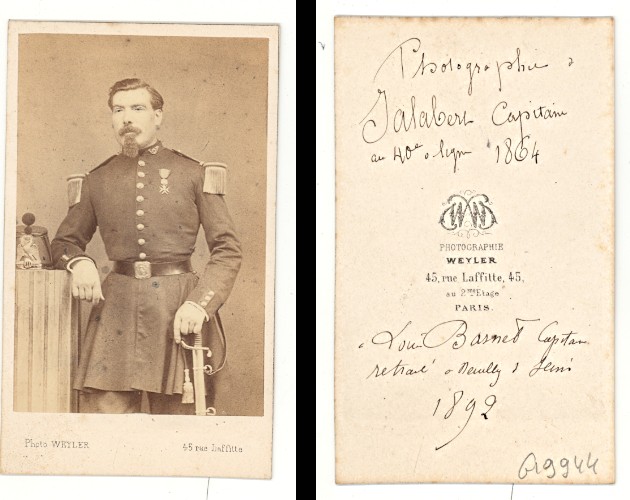 Photo WEYLER 45 rue Laffitte
Photographie
Jalabert Capitaine
au 40e ligne 1864
PHOTOGRAPHIE
WEYLER
45, rue Laffitte, 45,
au 2me Etage
PARIS.
Louis Barnet Capitaine
retraité à Neuilly s Seine
1892